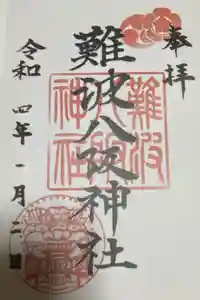 奉拝
難波八阪神社
難波八阪神社
令和四年一月二日